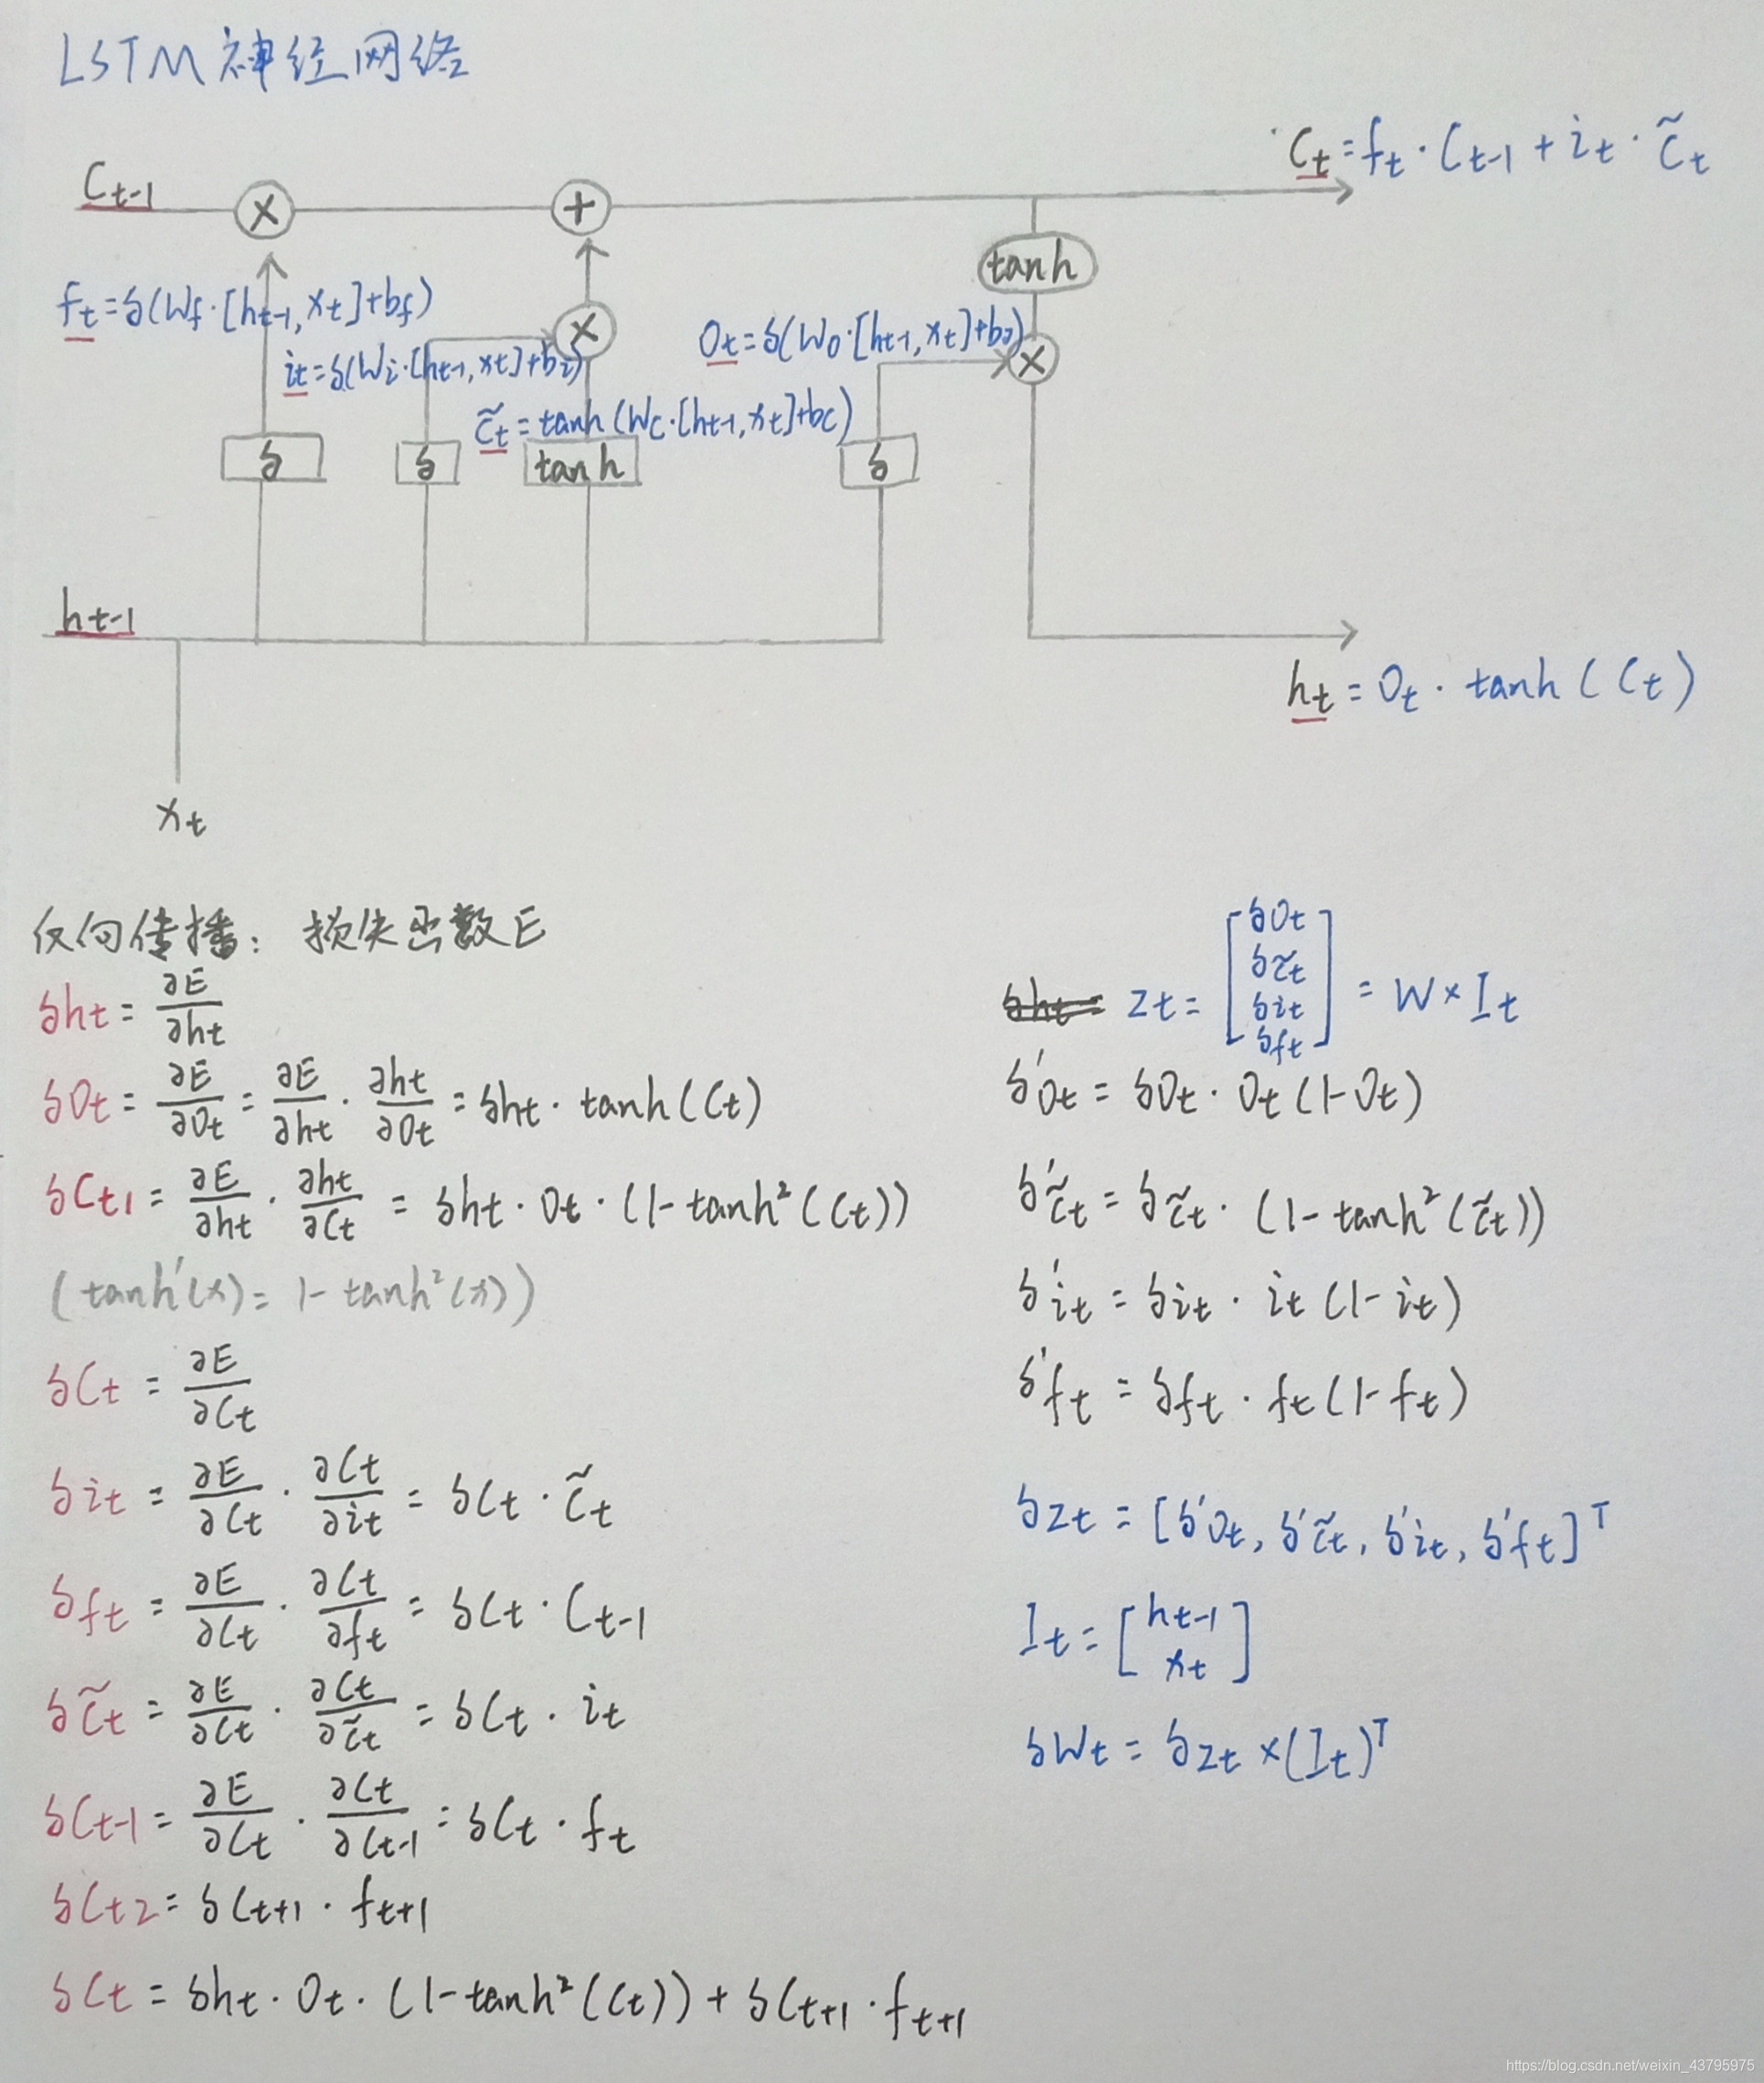 LSTM神经网络
C̃t-1
Ct = ft · Ct-1 + it · C̃t
tanh
ft = δ(Wf · [ht-1, xt] + bf)
it = δ(Wi · [ht-1, xt] + bi)
Ot = δ(Wo · [ht-1, xt] + bo)
C̃t = tanh(Wc · [ht-1, xt] + bc)
δ δ tanh δ
ht-1
ht = Ot · tanh(Ct)
xt
反向传播: 损失函数E
δht = ∂E/∂ht
δOt = ∂E/∂Ot = ∂E/∂ht · ∂ht/∂Ot = δht · tanh(Ct)
δCt1 = ∂E/∂ht · ∂ht/∂Ct = δht · Ot · (1 - tanh²(Ct))
(tanh'(x) = 1 - tanh²(x))
δCt = ∂E/∂Ct
δit = ∂E/∂Ct · ∂Ct/∂it = δCt · C̃t
δft = ∂E/∂Ct · ∂Ct/∂ft = δCt · Ct-1
δC̃t = ∂E/∂Ct · ∂Ct/∂C̃t = δCt · it
δCt-1 = ∂E/∂Ct · ∂Ct/∂Ct-1 = δCt · ft
δCt2 = δCt+1 · ft+1
δCt = δht · Ot · (1 - tanh²(Ct)) + δCt+1 · ft+1
zt = [δOt δC̃t δit δft] = W × It
δ'Ot = δOt · Ot(1 - Ot)
δ'C̃t = δC̃t · (1 - tanh²(C̃t))
δ'it = δit · it(1 - it)
δ'ft = δft · ft(1 - ft)
δzt = [δ'Ot, δ'C̃t, δ'it, δ'ft]ᵀ
It = [ht-1 xt]
δWt = δzt × (It)ᵀ
https://blog.csdn.net/weixin_43795975